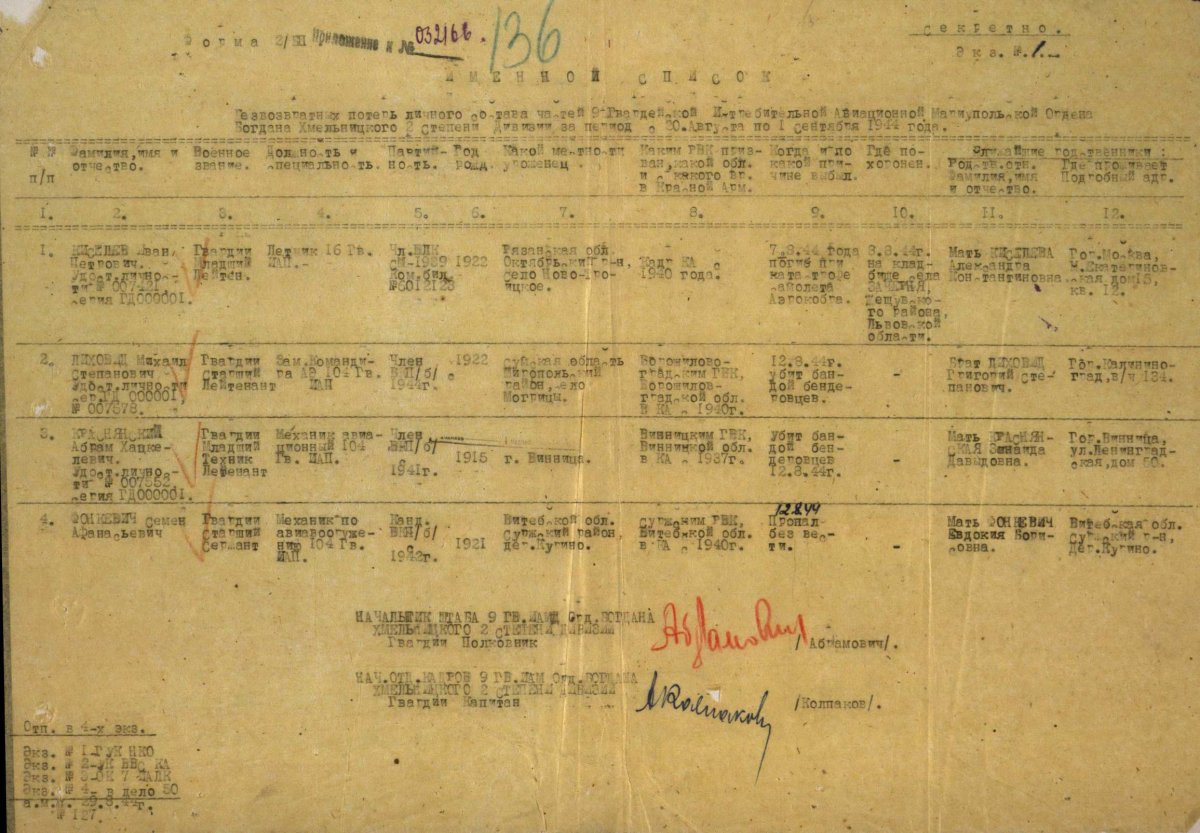 Форма 2/БП Приложение к № 032166. 136
Секретно.
Экз. № 1
ИМЕННОЙ СПИСОК
Безвозвратных потерь личного состава частей 9 Гвардейской Истребительной Авиационной Мариупольской Ордена
Богдана Хмельницкого 2 Степени Дивизии за период с 20.Августа по 1 Сентября 1944 года.
№ № п/п
Фамилия,имя и отчество.
Военное звание.
Должность и специальность.
Партий- ность.
Год рожд.
Какой местности уроженец.
Каким РВК приз- ван,какой обл. и с какого вр. в Красной Арм.
Когда и по какой при- чине выбыл.
Где по- хоронен.
родственники:
Родств.отн. Фамилия,имя и отчество.
Где проживает Подробный адр.
1. 2. 3. 4. 5. 6. 7. 8. 9. 10. 11. 12.
1. КИСЕЛЕВ Иван Петрович. Удост.лично- сти № 007421 серия ГД000001.
Гвардии Младший Лейтен.
Летчик 16 Гв. ИАП.
Чл.ВЛКСМ-1939 Ком.бил. №6012123
1922
Рязанская обл. Октябрьский р-н, село Ново-
Кадр КА с 1940 года.
7.8.44 года погиб при катастрофе самолета Аэрокобра.
8.8.44г. на клад- бище села ского района, Львовской области.
Мать КИСЕЛЕВА Александра Константиновна.
Гор.Москва, кв. 12.
2. ЛИХОВИД Михаил Степанович Удост.личности сер.ГД 000001, № 007578.
Гвардии Старший Лейтенант
Зам.Команди- ра АЭ 104 Гв. ИАП
Член ВКП/б/ с 1944г.
1922
Сумская область Миропольский район,село Могрицы.
Ворошилово- градским РВК, Ворошилов- градской обл. В КА с 1940г.
12.8.44г. убит бан- дой бенде- ровцев.
-
Брат ЛИХОВИД Григорий Сте- панович.
Гор.Калинино- град,в/ч 134.
3. КРАСНЯНСКИЙ Абрам Хацке- левич. Удост.лично- сти № 007552 серия ГД000001.
Гвардии Младший Техник Лейтенант
Механик авиа- ционный 104 Гв. ИАП.
Член ВКП/б/ с 1941г.
1915
г. Винница.
Винницким РВК, Винницкой обл. в КА с 1937г.
Убит бан- дой бен- деровцев 12.8.44г.
-
Мать КРАСНЯН- СКАЯ Зинаида Давыдовна.
Гор.Винница, ул.Ленинград- ская,дом 50.
4. ФОНКЕВИЧ Семен Афанасьевич
Гвардии Старший Сержант
Механик по авиавооруже- нию 104 Гв. ИАП.
Канд. ВКП/б/ с 1942г.
1921
Витебской обл. Суржский район, дер.Купино.
Суржским РВК, Витебской обл. в КА с 1940г.
12.8.44 Пропал без вес- ти.
-
Мать ФОНКЕВИЧ Евдокия Бори- совна.
Витебская обл. Суржский р-н, Дер.Купино.
НАЧАЛЬНИК ШТАБА 9 ГВ.ИАМД Орд.БОГДАНА
ХМЕЛЬНИЦКОГО 2 СТЕПЕНИ ДИВИЗИИ
Гвардии Полковник
Абрамович /Абрамович/.
НАЧ.ОТД.КАДРОВ 9 ГВ.ИАМ Орд.БОГДАНА
ХМЕЛЬНИЦКОГО 2 СТЕПЕНИ ДИВИЗИИ
Гвардии Капитан
АКолпаков /Колпаков/.
Отп. в 4-х экз.
Экз. № 1-ГУК НКО
Экз. № 2-УК ВВС КА
Экз. № 3-ОК 7 ИАПК
Экз. № 4- в дело 50
а.м.м. 29.8.44г.
№ 127.